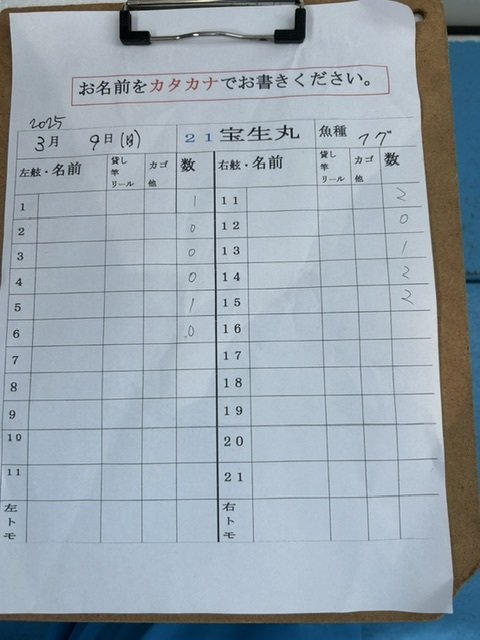 お名前をカタカナでお書きください。
2025
3月 9日(日) 21宝生丸 魚種 フグ
左舷・名前 貸し竿リール カゴ他 数 右舷・名前 貸し竿リール カゴ他 数
1 1 11 2
2 0 12 0
3 0 13 1
4 0 14 2
5 1 15 2
6 0 16
7 17
8 18
9 19
10 20
11 21
左トモ 右トモ